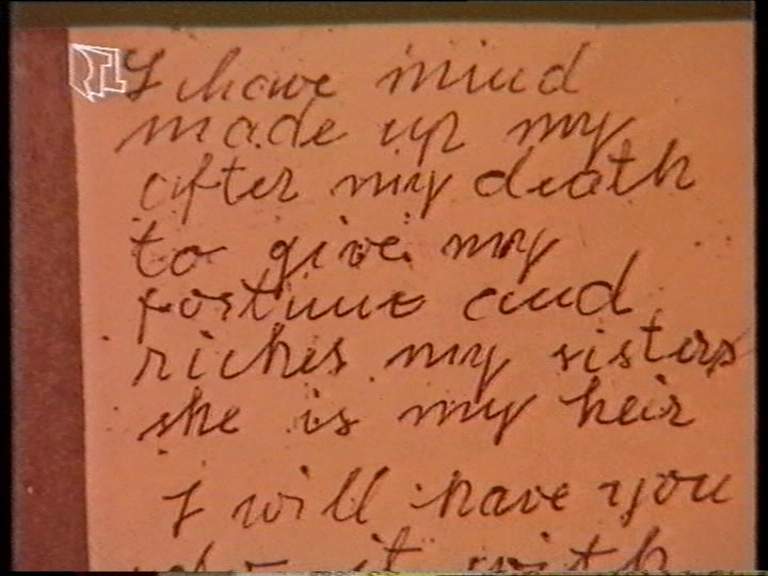 RTL
I have mind
made up my
after my death
to give my
fortune and
riches my sisters
she is my heir
I will have you
it with